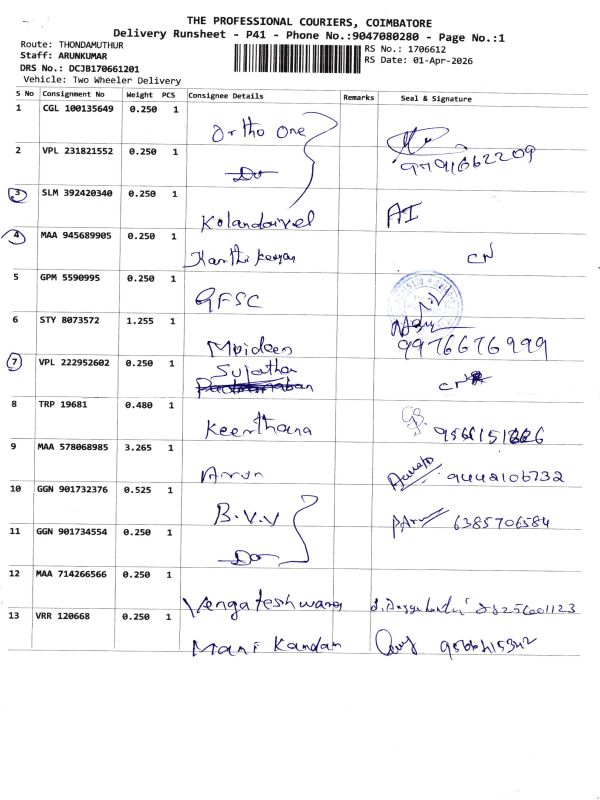 THE PROFESSIONAL COURIERS, COIMBATORE
Delivery Runsheet - P41 - Phone No.:9047080280 - Page No.:1
Route: THONDAMUTHUR
Staff: ARUNKUMAR
DRS No.: DCJB170661201
Vehicle: Two Wheeler Delivery
RS No.: 1706612
RS Date: 01-Apr-2026
S No Consignment No Weight PCS Consignee Details Remarks Seal & Signature
1 CGL 100135649 0.250 1 Ortho One
2 VPL 231821552 0.250 1 Do 9791662209
3 SLM 392420340 0.250 1 Kolandaivel AI
4 MAA 945689905 0.250 1 Karthikeyan CN
5 GPM 5590995 0.250 1 GFSC
6 STY 8073572 1.255 1 Moideen 9976676999
7 VPL 222952602 0.250 1 Sujatha CN
8 TRP 19681 0.480 1 Keerthana
9 MAA 578068985 3.265 1 Arun 9442106732
10 GGN 901732376 0.525 1 B.V.V 6385706584
11 GGN 901734554 0.250 1 Do
12 MAA 714266566 0.250 1 Vengateshwaran
13 VRR 120668 0.250 1 Mani Kandan 9566415342